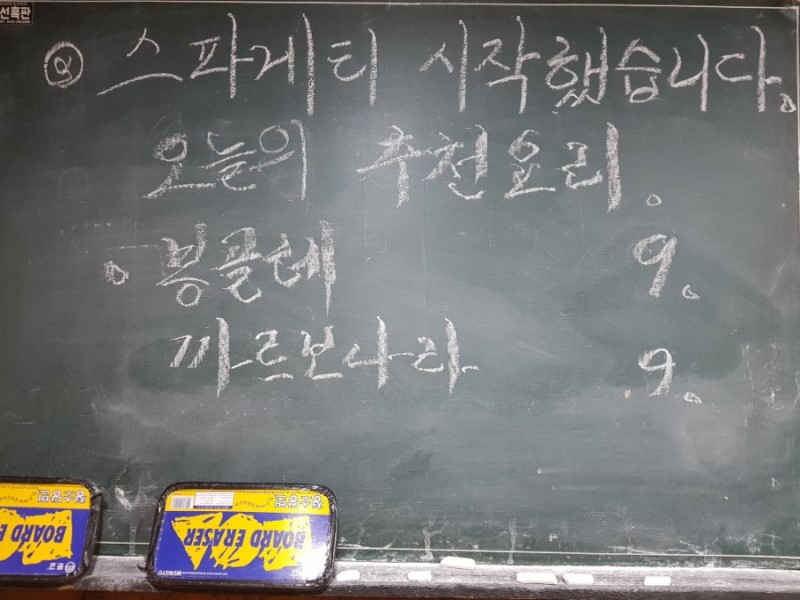 선흑판
Q 스파게티 시작했습니다。
오늘의 추천요리。
。봉골레 9。
까르보나라 9。
BOARD ERASER
BOARD ERASER
MUNGYO